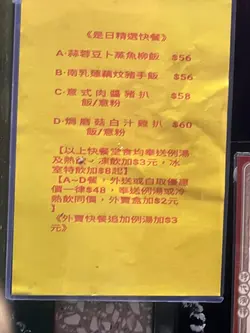 《是日精選快餐》
A·蒜蓉豆卜蒸魚柳飯 $56
B·南乳蓮藕炆豬手飯 $56
C·意式肉醬豬扒 $58
飯/意粉
D·焗蘑菇白汁雞扒 $60
飯/意粉
【以上快餐堂食均奉送例湯
及熱飲、凍飲加$3元，冰
室特飲加$8起】
【A~D餐，外送或自取優惠
價一律$48，奉送例湯或冷
熱飲同價，外賣盒加$2元
】
《外賣快餐追加例湯加$3
元》